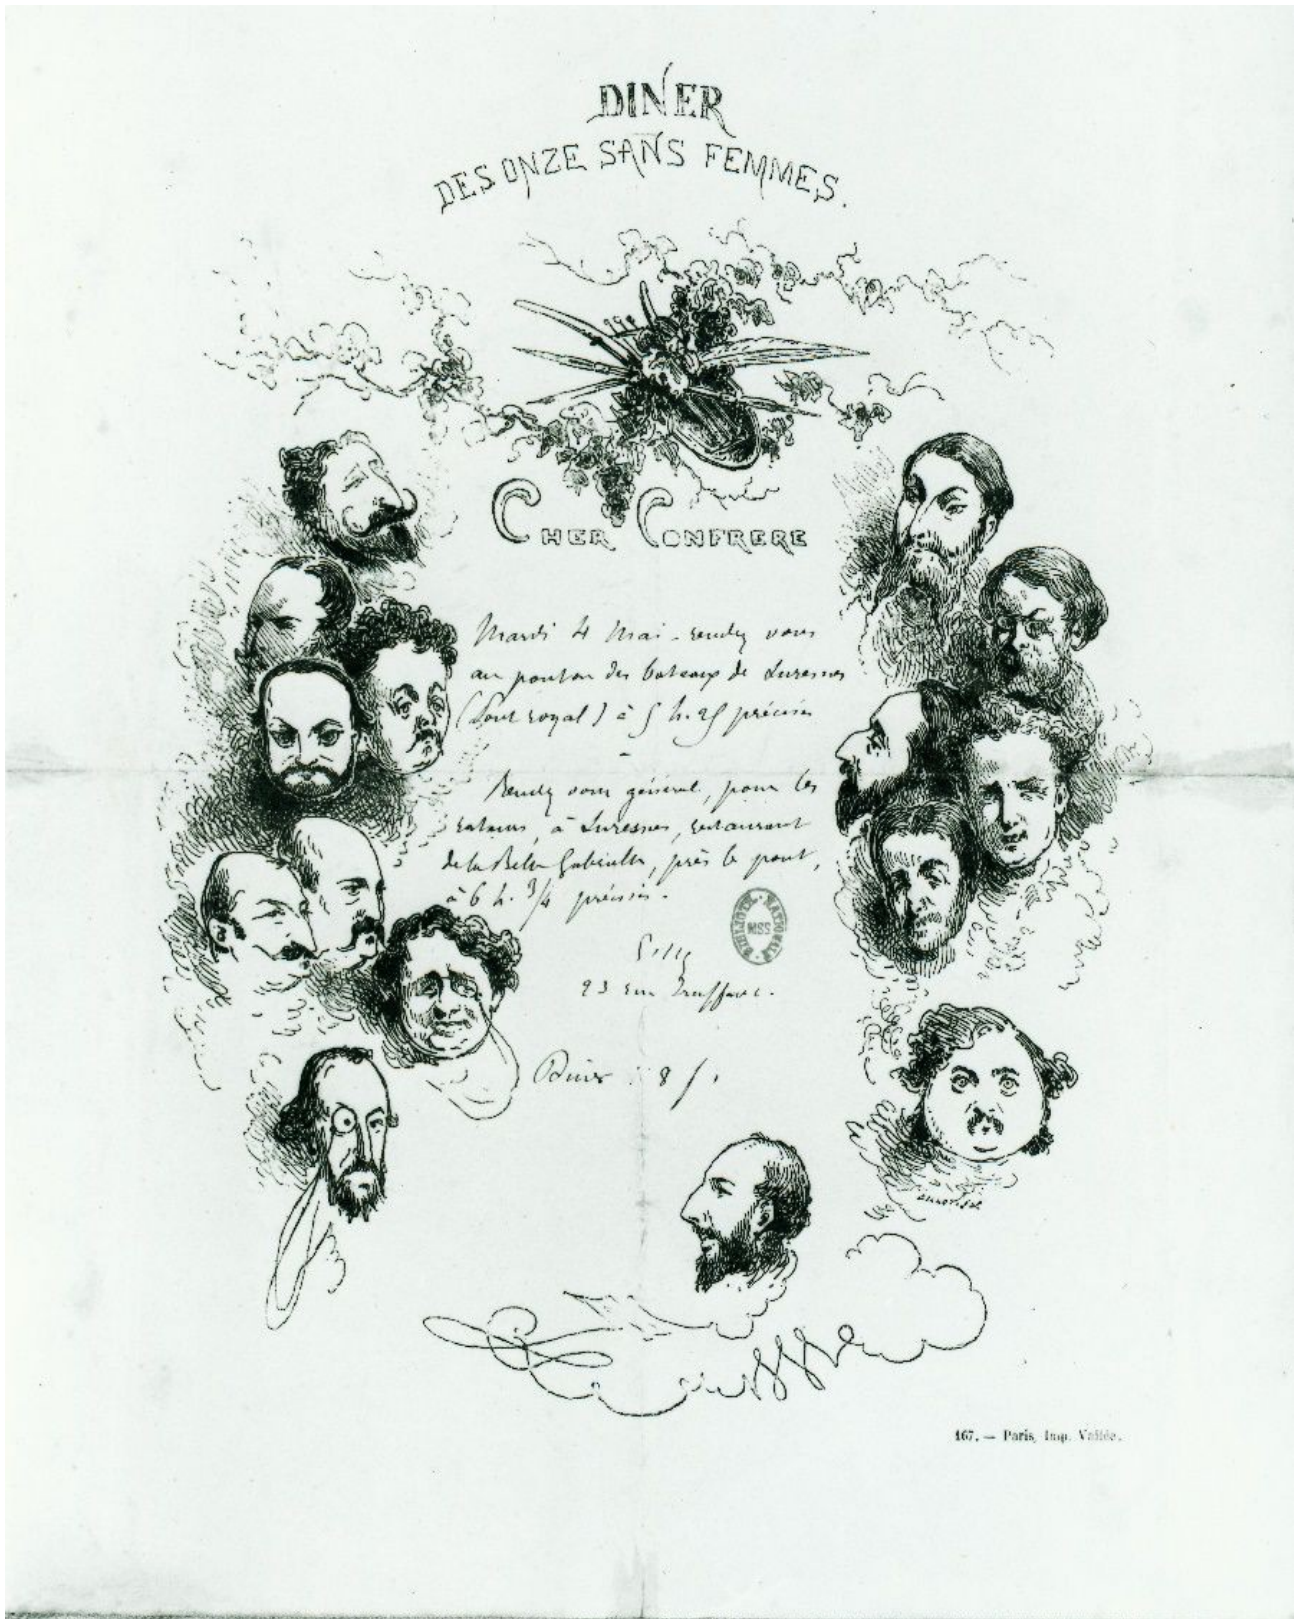 DINER
DES ONZE SANS FEMMES.
CHER CONFRERE
Mardi 4 Mai - rendez vous
au ponton des bateaux de Suresnes
(Pont royal) à 5 h. 25 précises
Rendez vous général, pour les
à Suresnes, restaurant
de la Belle Gabrielle, près le pont,
à 6 h. 3/4 précises.
BIBLIOTH. NATIONALE
MSS
Gill
23 rue Truffaut.
Diner : 8 f
167. — Paris, Imp. Vallée.